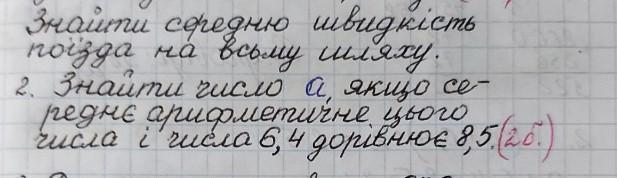 Знайти середню швидкість
поїзда на всьому шляху.
2. Знайти число а, якщо се-
реднє арифметичне цього
числа і числа 6,4 дорівнює 8,5. (2б.)